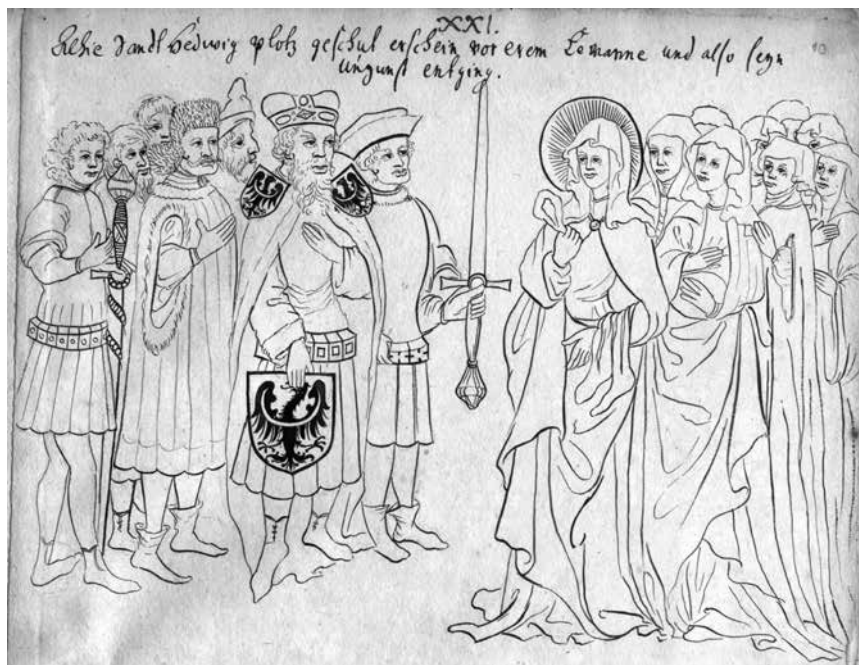 XXI.
Sandt Hedwig plotz geschut erschein vor erem Eemanne und also seyn 10
ungunst entging.